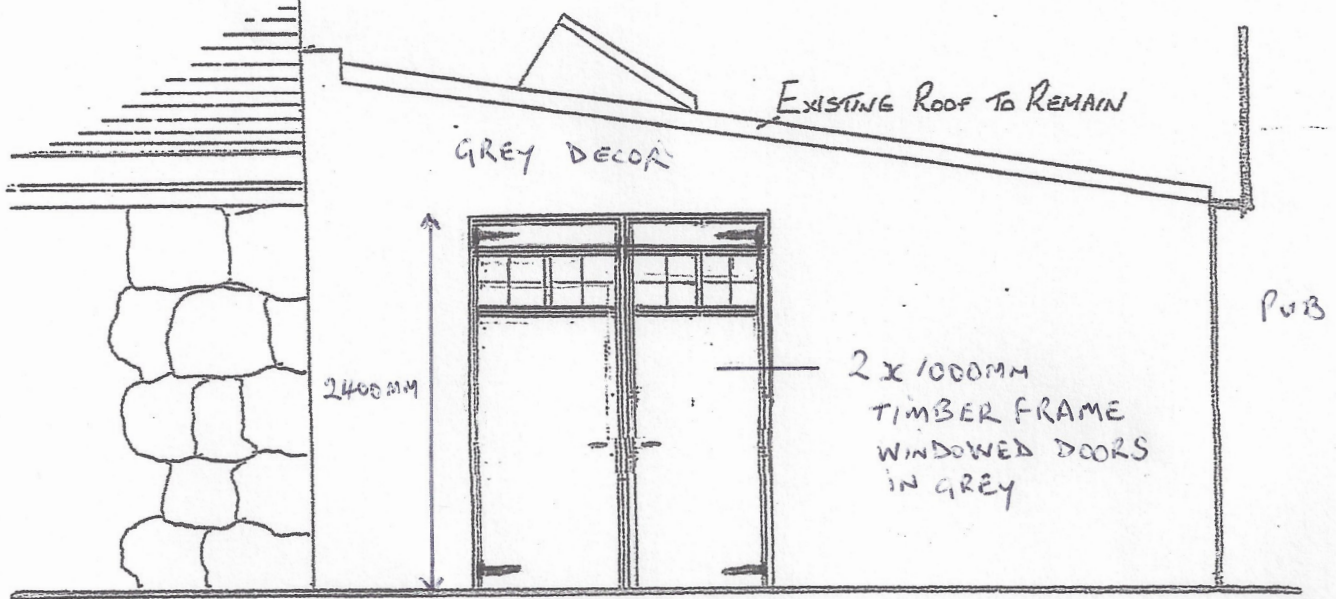 EXISTING ROOF TO REMAIN
GREY DECOR
PUB
2400MM
2 x 1000MM
TIMBER FRAME
WINDOWED DOORS
IN GREY